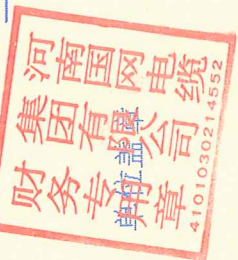 河南国网电缆
集团有限公司
财务专用章
4101030214552